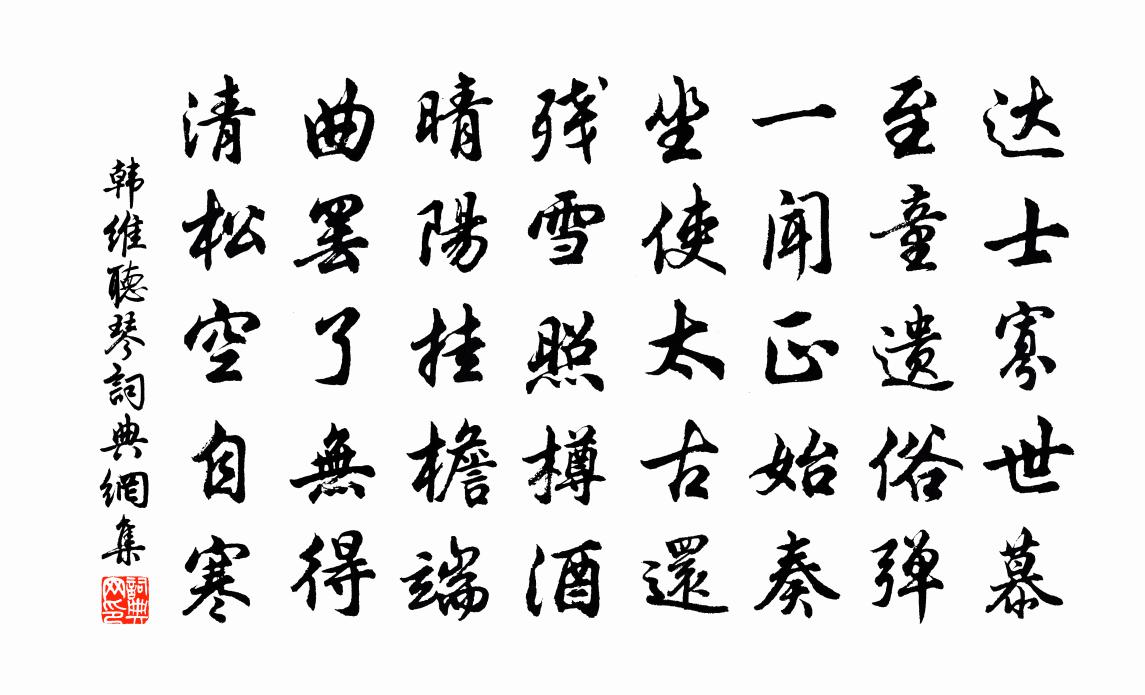 达士寡世慕
至童遗俗弹
一闻正始奏
坐使太古還
残雪照樽酒
晴陽挂檐端
曲罢了無得
清松空自寒
韩维聽琴詞典網集
詞典网印